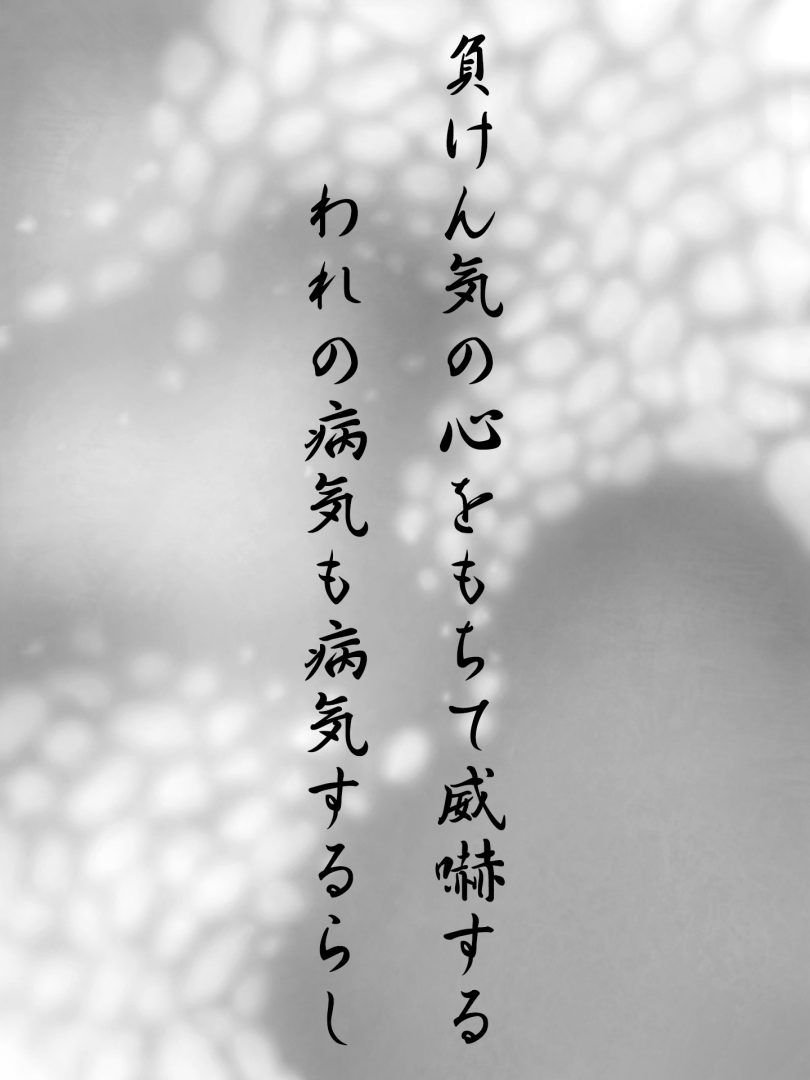 負けん気の心をもちて威嚇する
われの病気も病気するらし